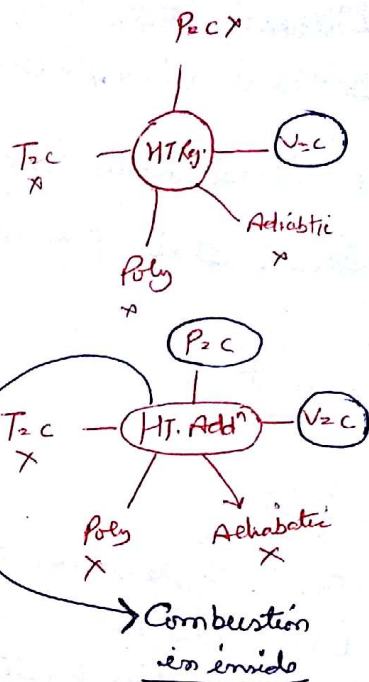 P=C ×
T=C
×
HT Rej.
V=C
Adiabtic
×
Poly
×
P=C
T=C
×
HT. Addⁿ
V=C
Poly
×
Adiabatic
×
Combustion
in insido